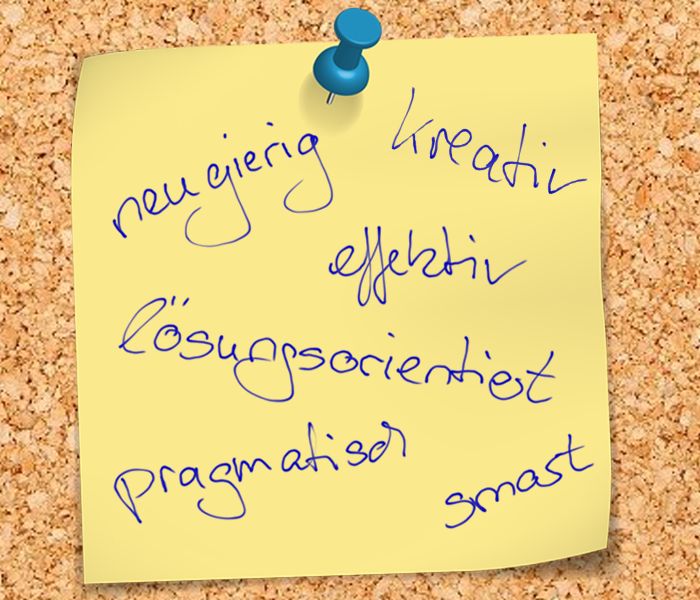 neugierig kreativ
effektiv
lösungsorientiert
pragmatisch smart